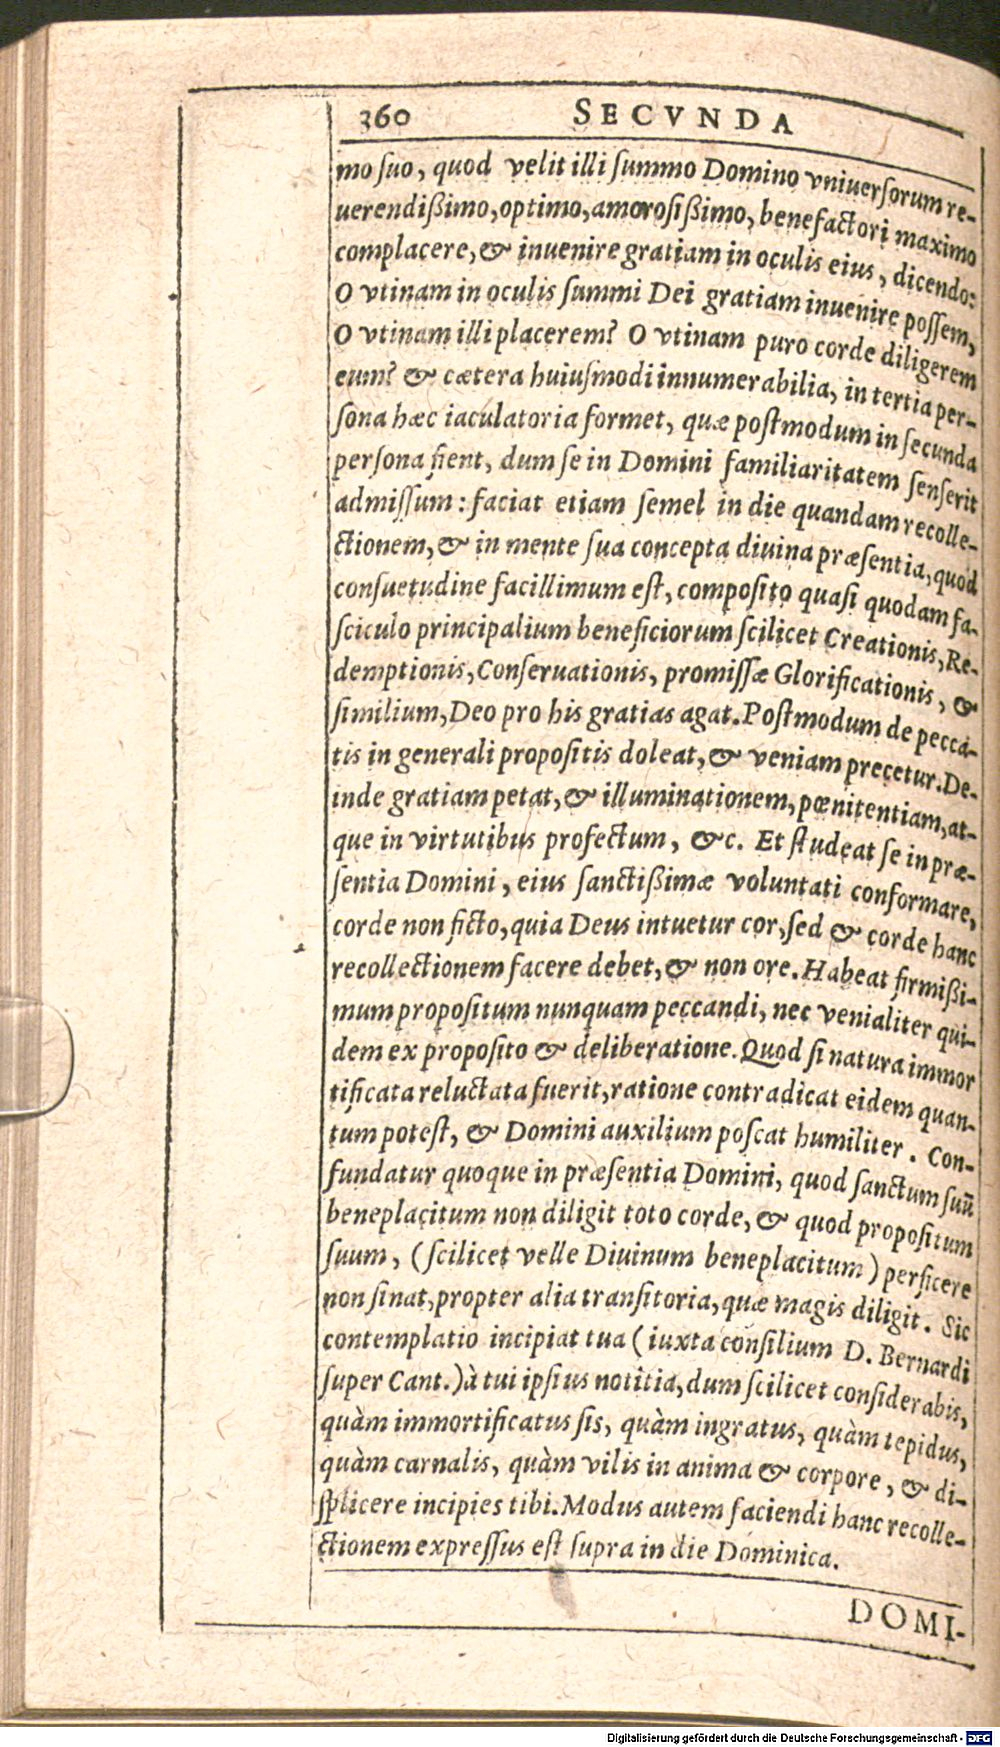 360 SECVNDA
mo ſuo, quod velit illi ſummo Domino vniuerſorum re-
uerendißimo, optimo, amoroſißimo, benefactori maximo
complacere, & inuenire gratiam in oculis eius, dicendo:
O vtinam in oculis ſummi Dei gratiam inuenire poſſem,
O vtinam illi placerem? O vtinam puro corde diligerem
eum? & cætera huiuſmodi innumerabilia, in tertia per-
ſona hæc iaculatoria formet, quæ poſtmodum in ſecunda
perſona fient, dum ſe in Domini familiaritatem ſenſerit
admiſſum: faciat etiam ſemel in die quandam recolle-
ctionem, & in mente ſua concepta diuina præſentia, quod
conſuetudine facillimum eſt, compoſito quaſi quodam fa-
ſciculo principalium beneficiorum ſcilicet Creationis, Re-
demptionis, Conſeruationis, promiſſæ Glorificationis, &
ſimilium, Deo pro his gratias agat. Poſtmodum de pecca-
tis in generali propoſitis doleat, & veniam precetur. De-
inde gratiam petat, & illuminationem, pœnitentiam, at-
que in virtutibus profectum, &c. Et ſtudeat ſe in præ-
ſentia Domini, eius ſanctißimæ voluntati conformare,
corde non ficto, quia Deus intuetur cor, ſed & corde hanc
recollectionem facere debet, & non ore. Habeat firmißi-
mum propoſitum nunquam peccandi, nec venialiter qui-
dem ex propoſito & deliberatione. Quod ſi natura immor
tificata reluctata fuerit, ratione contradicat eidem quan-
tum poteſt, & Domini auxilium poſcat humiliter. Con-
fundatur quoque in præſentia Domini, quod ſanctum ſuū
beneplacitum non diligit toto corde, & quod propoſitum
ſuum, (ſcilicet velle Diuinum beneplacitum) perficere
non ſinat, propter alia tranſitoria, quæ magis diligit. Sic
contemplatio incipiat tua (iuxta conſilium D. Bernardi
ſuper Cant.) à tui ipſius notitia, dum ſcilicet conſiderabis,
quàm immortificatus ſis, quàm ingratus, quàm tepidus,
quàm carnalis, quàm vilis in anima & corpore, & di-
ſplicere incipies tibi. Modus autem faciendi hanc recolle-
ctionem expreſſus eſt ſupra in die Dominica.
DOMI-
Digitalisierung gefördert durch die Deutsche Forschungsgemeinschaft - DFG